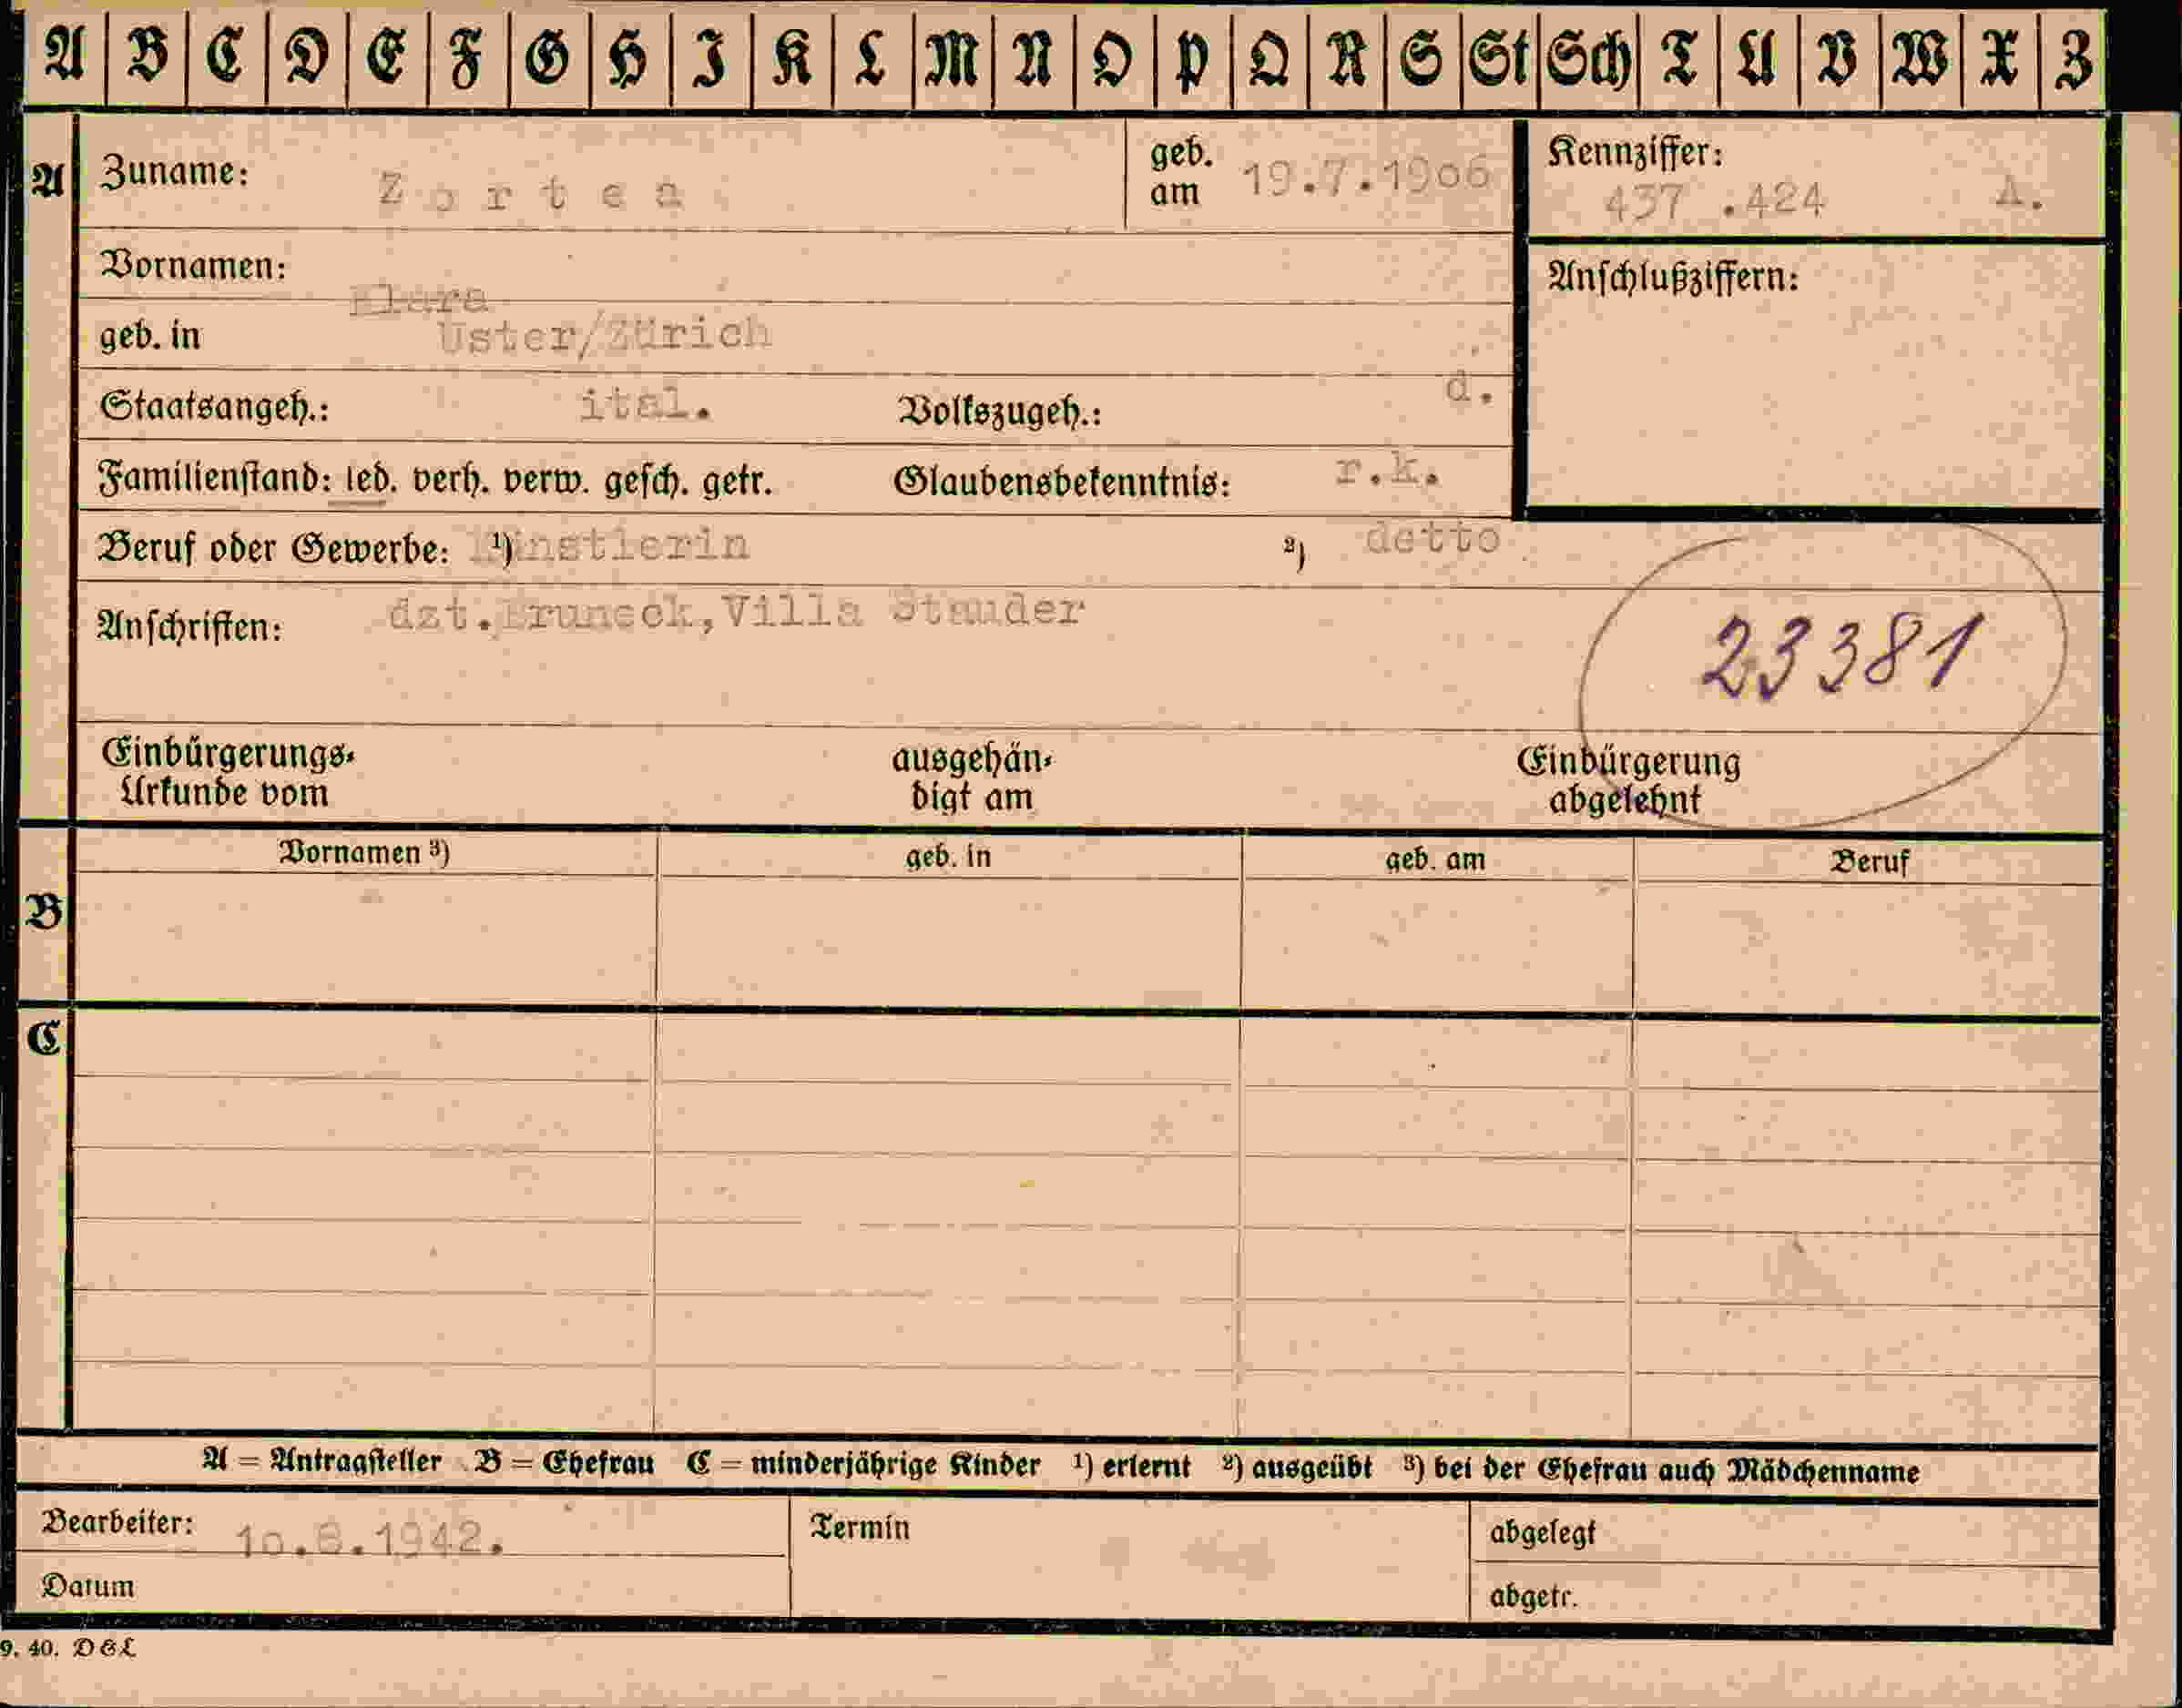 A B C D E F G H I K L M N O P Q R S St Sch T U V W X Z
A Zuname: Zortea geb. am 19.7.1906 Kennziffer: 437 .424 A.
Vornamen: Klara Anschlußziffern:
geb. in Uster/Zürich
Staatsangeh.: ital. Volkszugeh.: d.
Familienstand: led. verh. verw. gesch. getr. Glaubensbekenntnis: r.k.
Beruf oder Gewerbe: ¹) Künstlerin ²) detto
Anschriften: dzt.Bruneck,Villa Stauder
23381
Einbürgerungs- Urkunde vom ausgehän- digt am Einbürgerung abgelehnt
Vornamen ³) geb. in geb. am Beruf
B
C
A = Antragsteller B = Ehefrau C = minderjährige Kinder ¹) erlernt ²) ausgeübt ³) bei der Ehefrau auch Mädchenname
Bearbeiter: 10.8.1942. Termin abgelegt
Datum abgetr.
9. 40. DEL